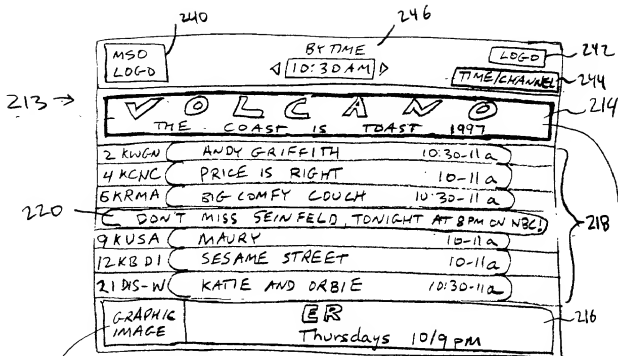 240
246
MSO
LOGO
BY TIME
10:30AM
LOGO
242
TIME/CHANNEL
244
213
VOLCANO
THE COAST IS TOAST 1997
214
2 KWGN ANDY GRIFFITH 10:30-11a
4 KCNC PRICE IS RIGHT 10-11a
6 KRMA BIG COMFY COUCH 10:30-11a
220
DON'T MISS SEINFELD, TONIGHT AT 8PM ON NBC!
218
9 KUSA MAURY 10-11a
12 KBDI SESAME STREET 10-11a
21 DIS-W KATIE AND ORBIE 10:30-11a
GRAPHIC
IMAGE
ER
Thursdays 10/9 pm
216